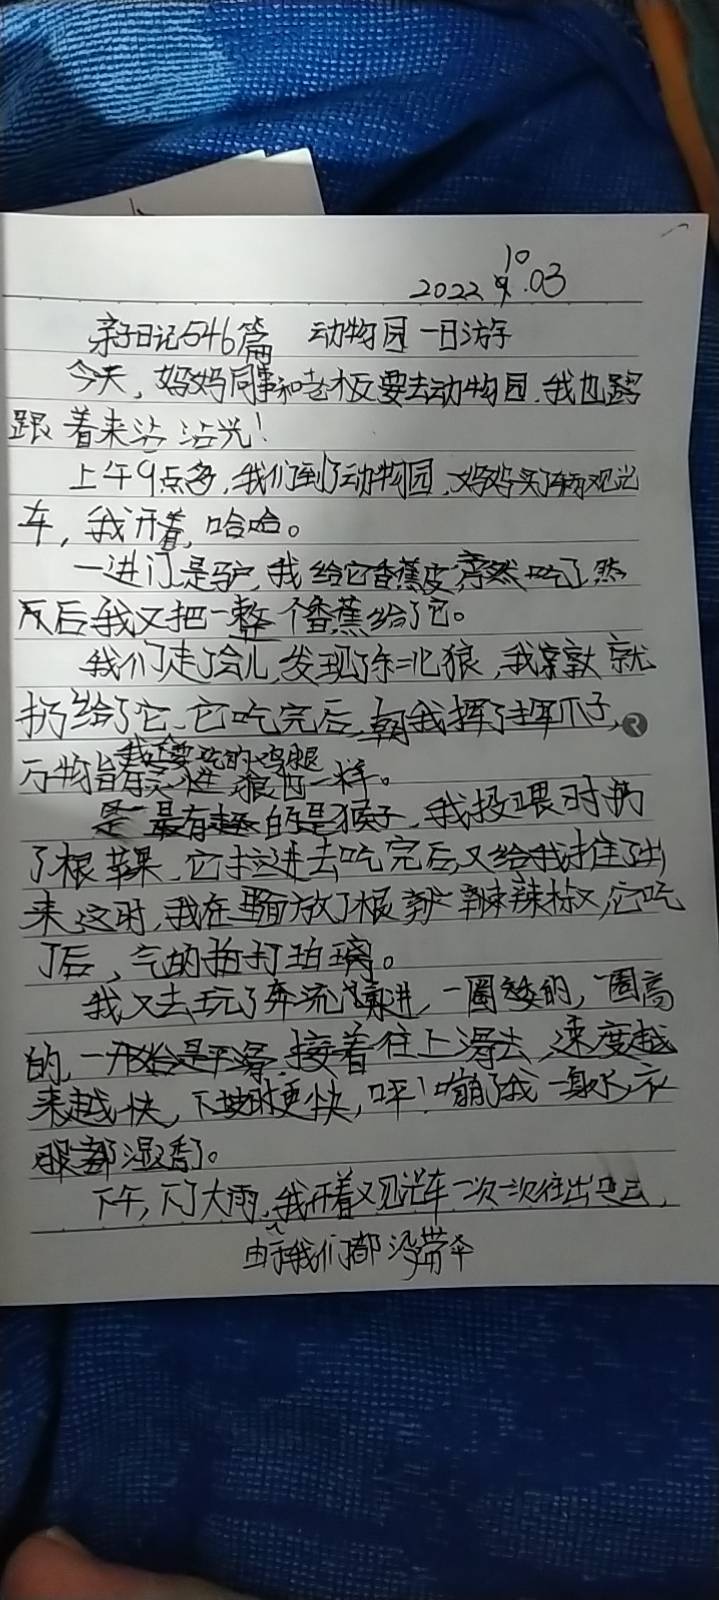 2022 10.03
亲子日记546篇 动物园一日游
今天，妈妈同事和老板要去动物园，我也
跟着来沾沾光！
上午9点多，我们到了动物园，妈妈买了辆观光
车，我开着，哈哈。
一进门是驴，我给它香蕉皮，竟然吃了，然
后我又把一整个香蕉给了它。
我们走了会儿，发现了东北狼，我就
扔给了它，它吃完后，朝我挥了挥爪子，
我要吃的鸡腿
万物皆有灵性，狼也一样。
最有趣的是猴子，我投喂时扔
了根苹果，它拉进去吃完后，又给我推了出
来，这时，我在里面放了根辣椒，它吃
了后，气的拍打玻璃。
我又去玩了奔流勇进，一圈矮的，一圈高
的，一开始是平滑，接着往上滑去，速度越
来越快，下坡时更快，呯！嘣了我一身水，衣
服都湿透了。
下午，下了大雨，我开着观光车一次一次往出
由于我们都没带伞